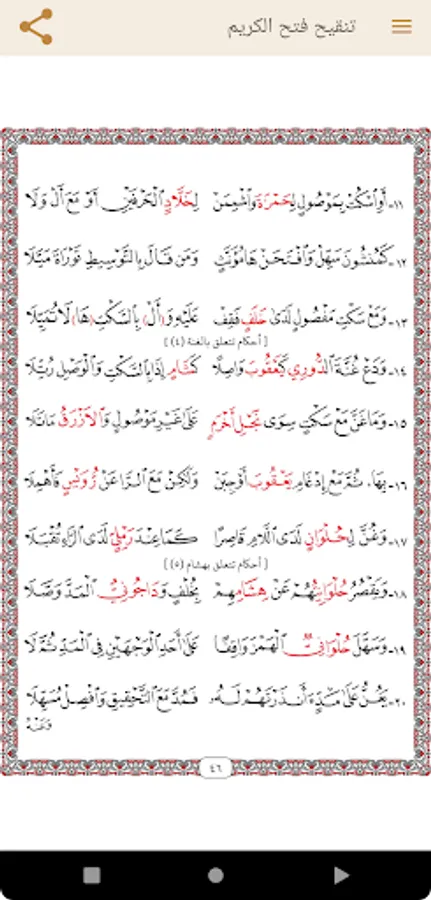 تنقيح فتح الكريم
١١- أَوِ اسْكُتْ بِمَوْصُولٍ لِحَمْزَةَ وَاشْمِمَنْ لِخَلَّادٍ الْحَرْفَيْنِ أَوْ مَعَ أَلْ وَلَا
١٢- كَمُنْشُونَ سَهِّلْ وَافْتَحَنْ هَا مُؤَنَّثٍ وَمَن قَالَ بِالتَّوْسِيطِ تَوْرَاةَ مَيَّلَا
١٣- وَمَعْ سَكْتِ مَفْصُولٍ لَدَى خَلَفٍ فَقِفْ عَلَيْهِ وَ(أَلْ) بِالسَّكْتِ (هَا) لَا تُمَيِّلَا
[ أحكام تتعلق بالغنة (٤) ]
١٤- وَدَعْ غُنَّةَ الدُّورِي كَيَعْقُوبَ وَاصِلًا كَشَامٍ إِذَا بِالسَّكْتِ وَالْوَصْلِ رُتِّلَا
١٥- وَمَا غَنَّ مَعْ سَكْتٍ سِوَى نَجْلِ أَخْرَمٍ عَلَى غَيْرِ مَوْصُولٍ وَالْأَزْرَقُ مَا تَلَا
١٦- بِهَا، ثُمَّ مَعْ إِدْغَامِ يَعْقُوبَ أَوْجِبَنْ وَلَكِنْ مَعَ الرَّا عَنْ رُوَيْسٍ فَأَهْمِلَا
١٧- وَغُنَّ لِحُلْوَانٍ لَدَى اللَّامِ قَاصِرًا كَمَا عِنْدَ رَمْلِيٍّ لَدَى الرَّاءِ تُقْبَلَا
[ أحكام تتعلق بهشام (٥) ]
١٨- وَيَقْصُرُ حُلْوَانِيُّهُمْ عَنْ هِشَامِهِمْ بِخُلْفٍ وَدَاجُونِيُّ الْمَدَّ وَصَّلَا
١٩- وَسَهَّلَ حُلْوَانِيٌّ الْهَمْزَ وَاقِفًا عَلَى أَحَدِ الْوَجْهَيْنِ فِي الْمَدِّ ثُمَّ لَا
٢٠- يَغُنُّ عَلَى مَدٍّ ءَأَنذَرْتَهُمْ لَهُ، فَمُدَّ مَعَ التَّحْقِيقِ وَافْصِلْ مُسَهِّلَا
وَعَنْهُ
٤٦